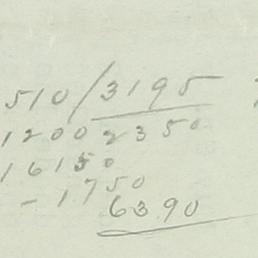 510/3195
1200 2350
16150
- 1750
6390